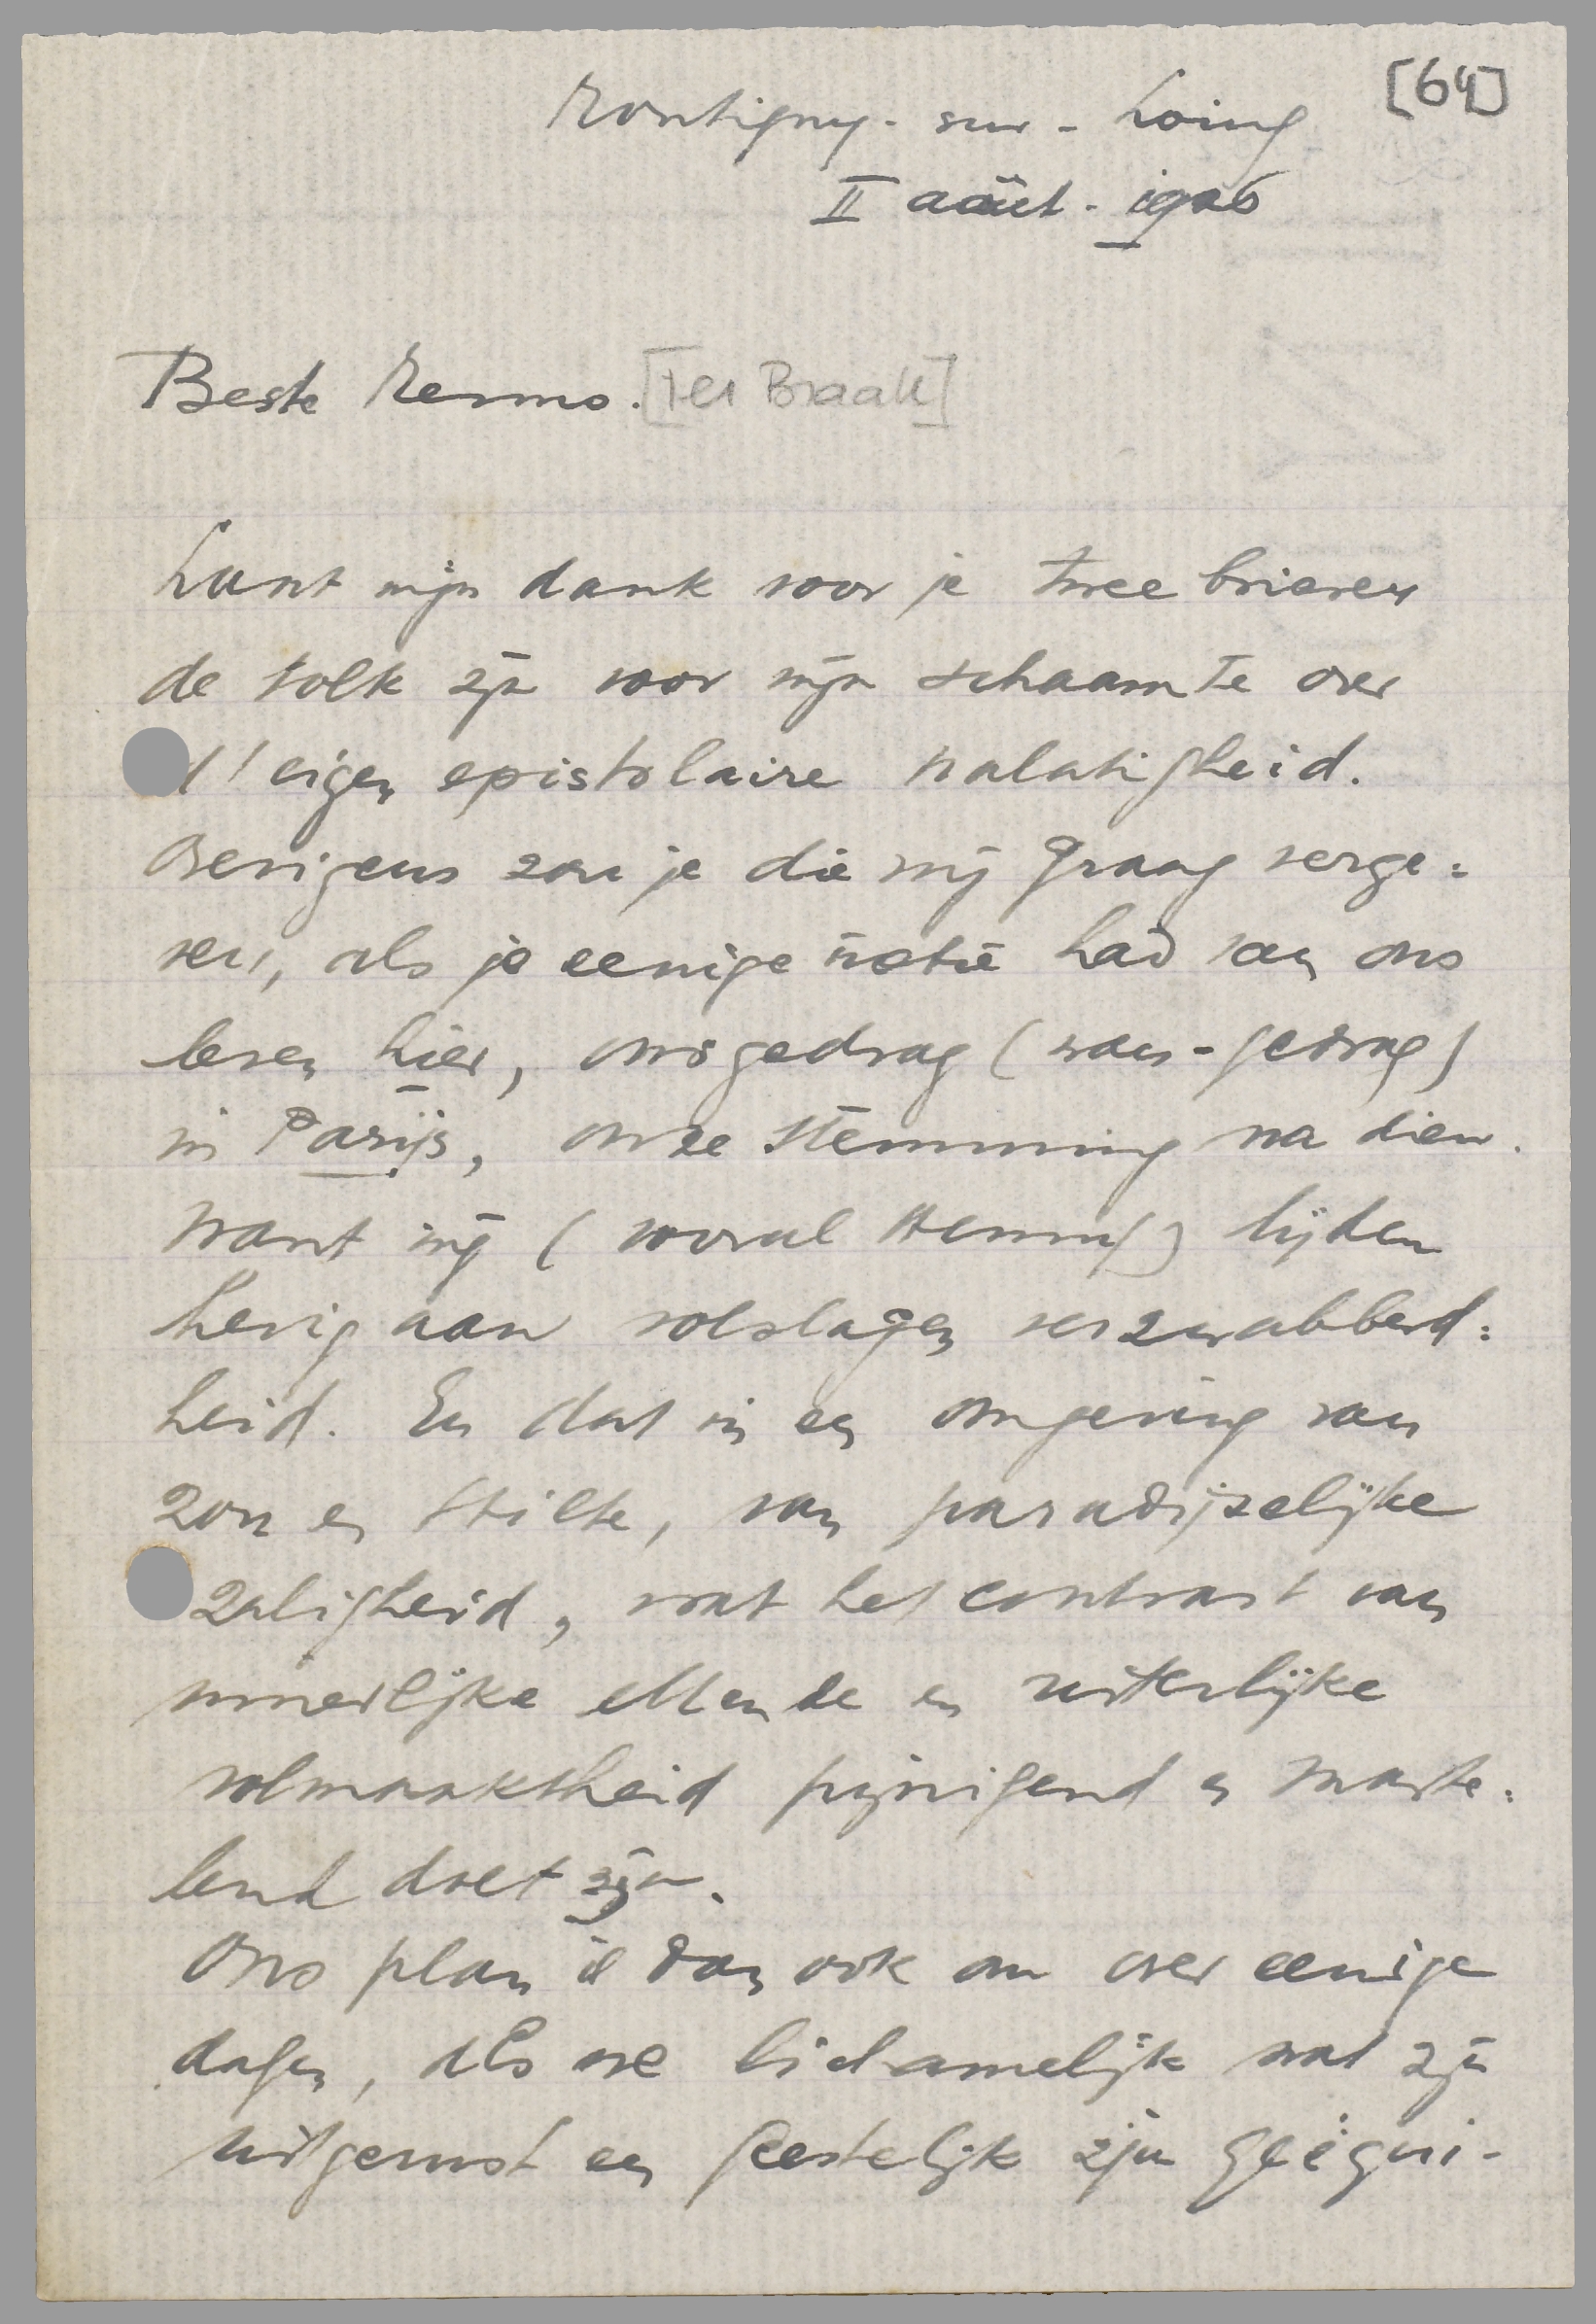 [64]
Montigny-sur-Loing
II août. 1926
Beste Menno. [ter Braak]
Laat mijn dank voor je twee brieven
de tolk zijn voor mijn schaamte over
d' eigen epistolaire nalatigheid.
Overigens zou je die mij graag verge=
ven, als je eenige notie had van ons
leven hier, ons gedrag (wan-gedrag)
in Parijs, onze stemming na dien.
Want wij (vooral Henny) lijden
hevig aan volslagen verzwabberd=
heid. En dat in en omgeving van
zon en stilte, van paradijzelijke
zaligheid, wat het contrast van
innerlijke ellende en uiterlijke
volmaaktheid pijnigend en marte=
lend doet zijn.
Ons plan is dan ook om over eenige
dagen, als we lichamelijk wat zijn
uitgerust en geestelijk zijn geëqui-